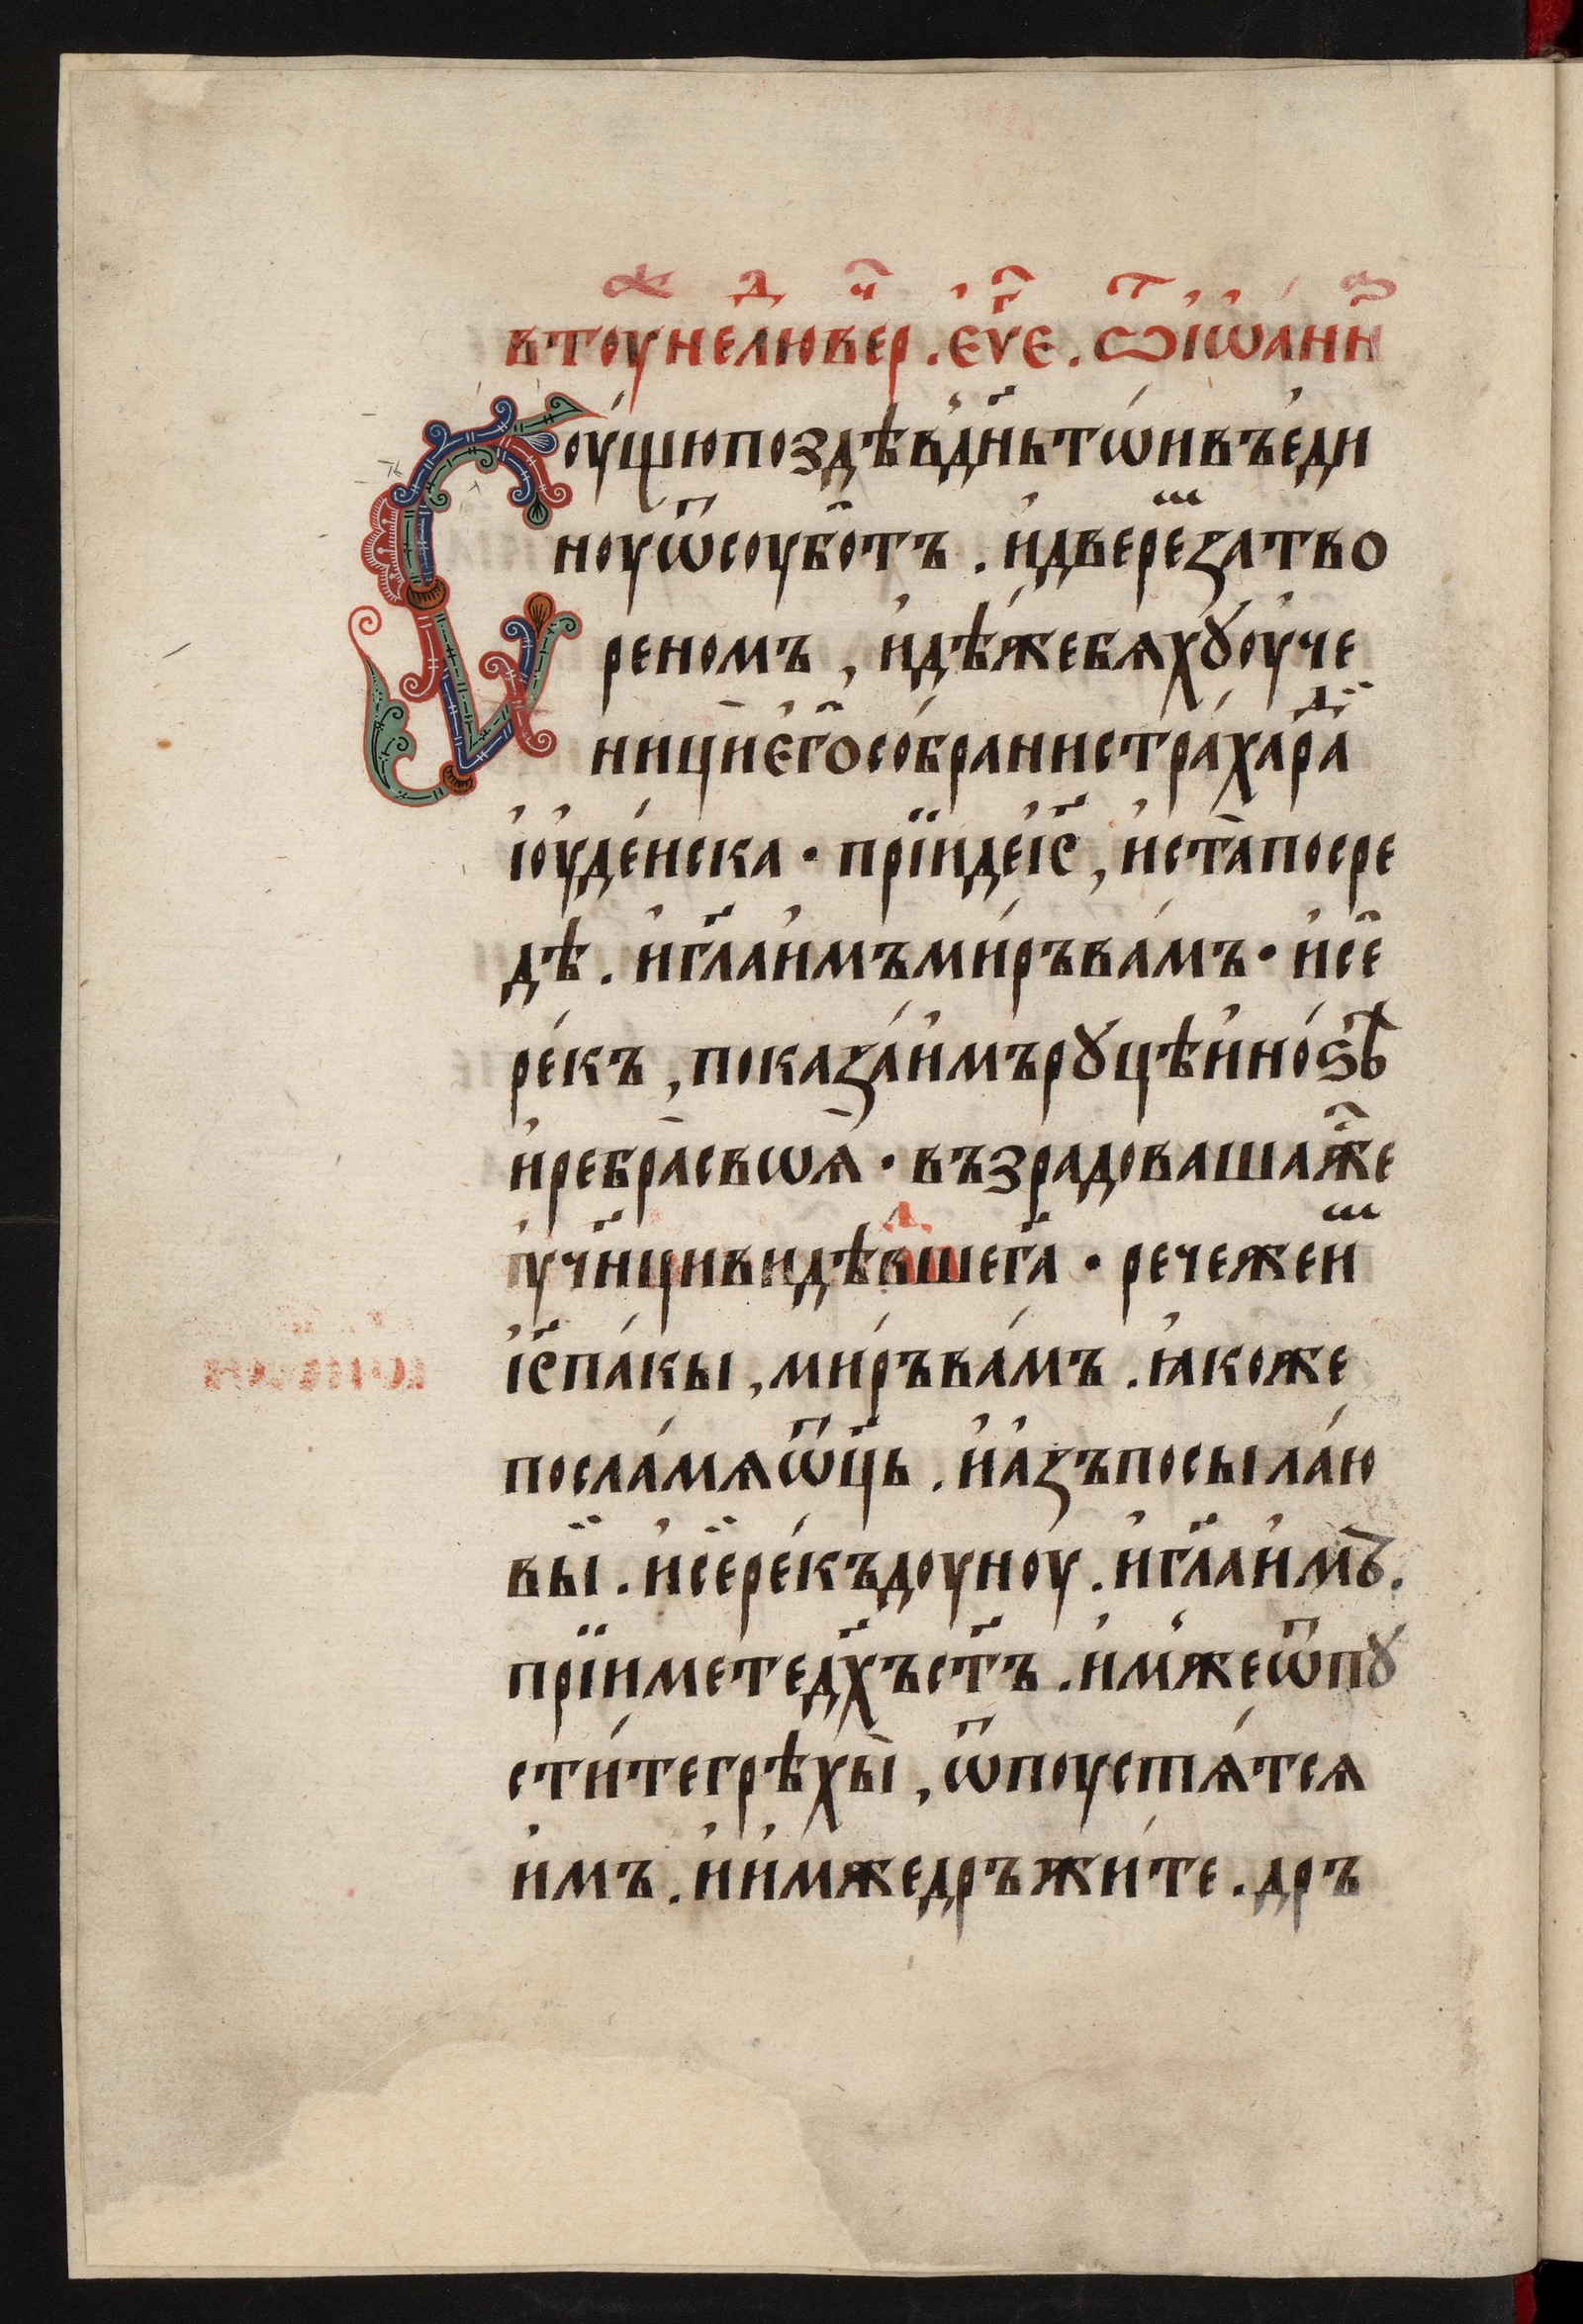 втоуⷤ҇неⷣлювеⷱ҇р . е҆ѵⷢ҇е . ѿі҆ѡ҆анⷩ
Соу́щюпоздѣв҆дн҃ьтѡ́нвъе҆ди
ноуѿсоубо̑тъ . и҆двереⷨзатво
реномъ , и҆дѣ́жебѧхꙋ́оу҆че
ници̅е҆го̑со́браниⷭтра́хара́ⷣ
і҆оу҆де́иска · прїидеі҆с҃ , и҆ста̀посре
дѣ . и҆гл҃аи҆мъми́ръва́мъ · и҆се̑
ре́къ , показа́и҆мърꙋцѣи҆но́ѕѣ
и҆ребра̀свѡѧ̀ · възрадовашаⷤ҇же
у҆чн҃цивидѣⷡвшег҃а · речежеиⷨ
і҆с҃па́кы , ми́ръва́мъ . ꙗ҆коже
посла́мѧѿц҃ь . и҆а҆зъпосыла́ю
вӹ . и҆сёре́къдоуноу . и҆гл҃аи҆мъ̀ .
прїиметедх҃ъст҃ъ . и҆м҆жеѿпꙋ
сти́тегрѣхы̀ , ѿпоустѧ́тсѧ
и҆мъ . и҆и҆мжедръжи́те . дръ